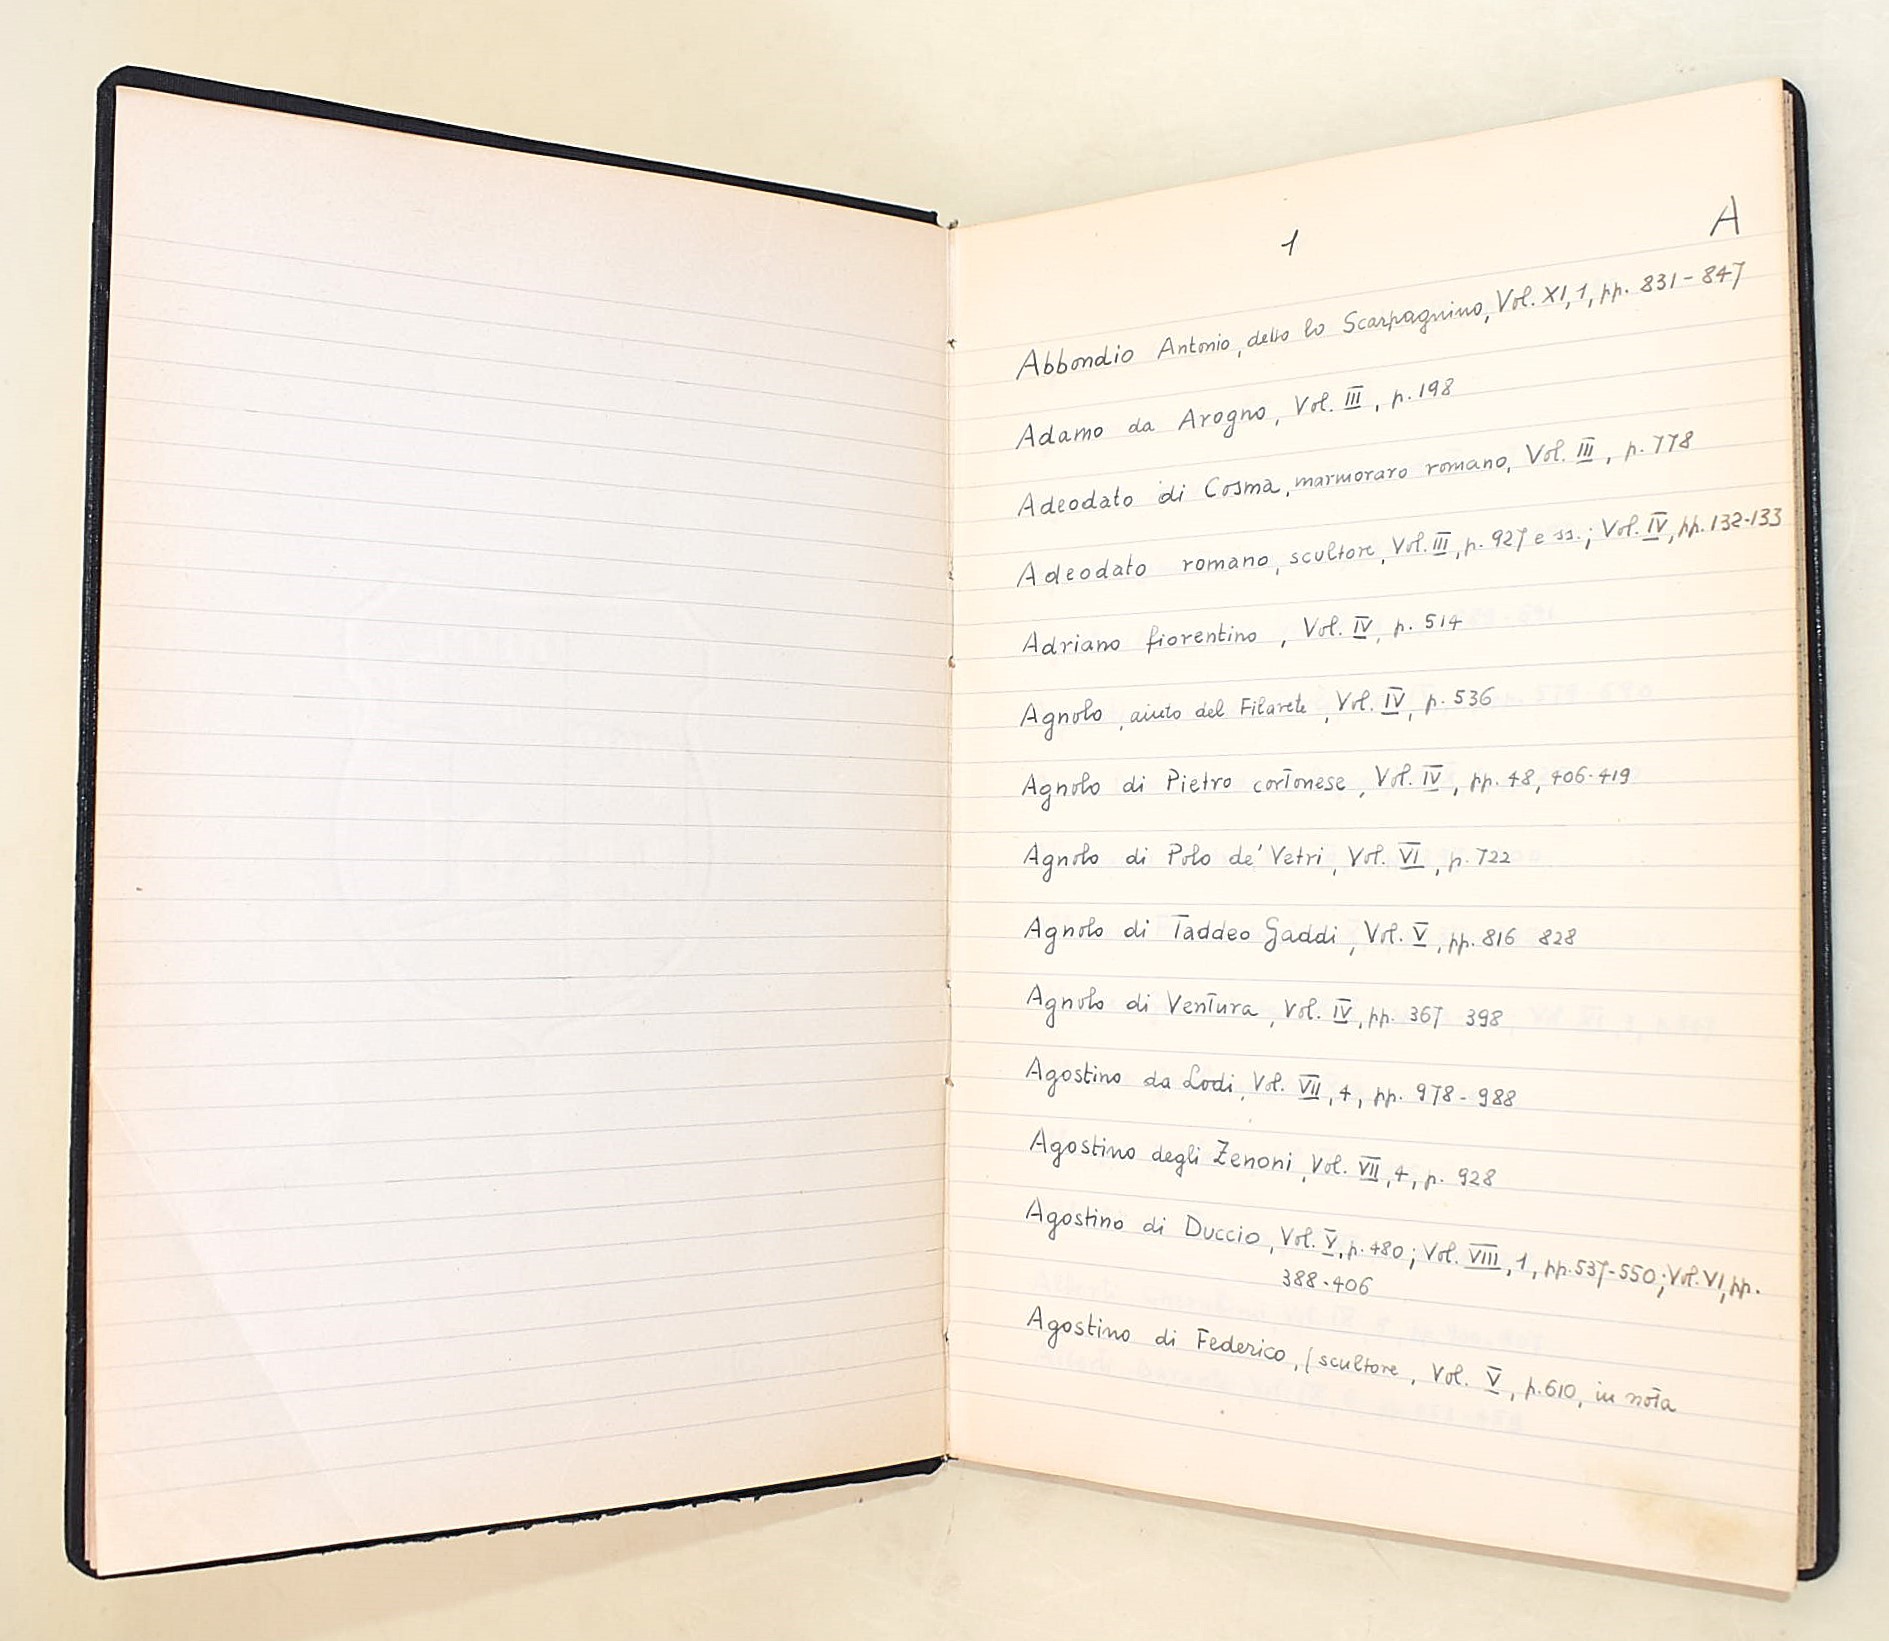 1
A
Abbondio Antonio, detto lo Scarpagnino, Vol. XI, 1, pp. 831-847
Adamo da Arogno, Vol. III, p. 198
Adeodato di Cosma, marmoraro romano, Vol. III, p. 778
Adeodato romano, scultore, Vol. III, p. 927 e ss.; Vol. IV, pp. 132-133
Adriano fiorentino, Vol. IV, p. 514
Agnolo, aiuto del Filarete, Vol. IV, p. 536
Agnolo di Pietro cortonese, Vol. IV, pp. 48, 406-419
Agnolo di Polo de' Vetri, Vol. VI, p. 722
Agnolo di Taddeo Gaddi, Vol. V, pp. 816 828
Agnolo di Ventura, Vol. IV, pp. 367 398
Agostino da Lodi, Vol. VII, 4, pp. 978-988
Agostino degli Zenoni, Vol. VII, 4, p. 928
Agostino di Duccio, Vol. V, p. 480; Vol. VIII, 1, pp. 537-550; Vol. VI, pp.
388-406
Agostino di Federico, (scultore, Vol. V, p. 610, in nota